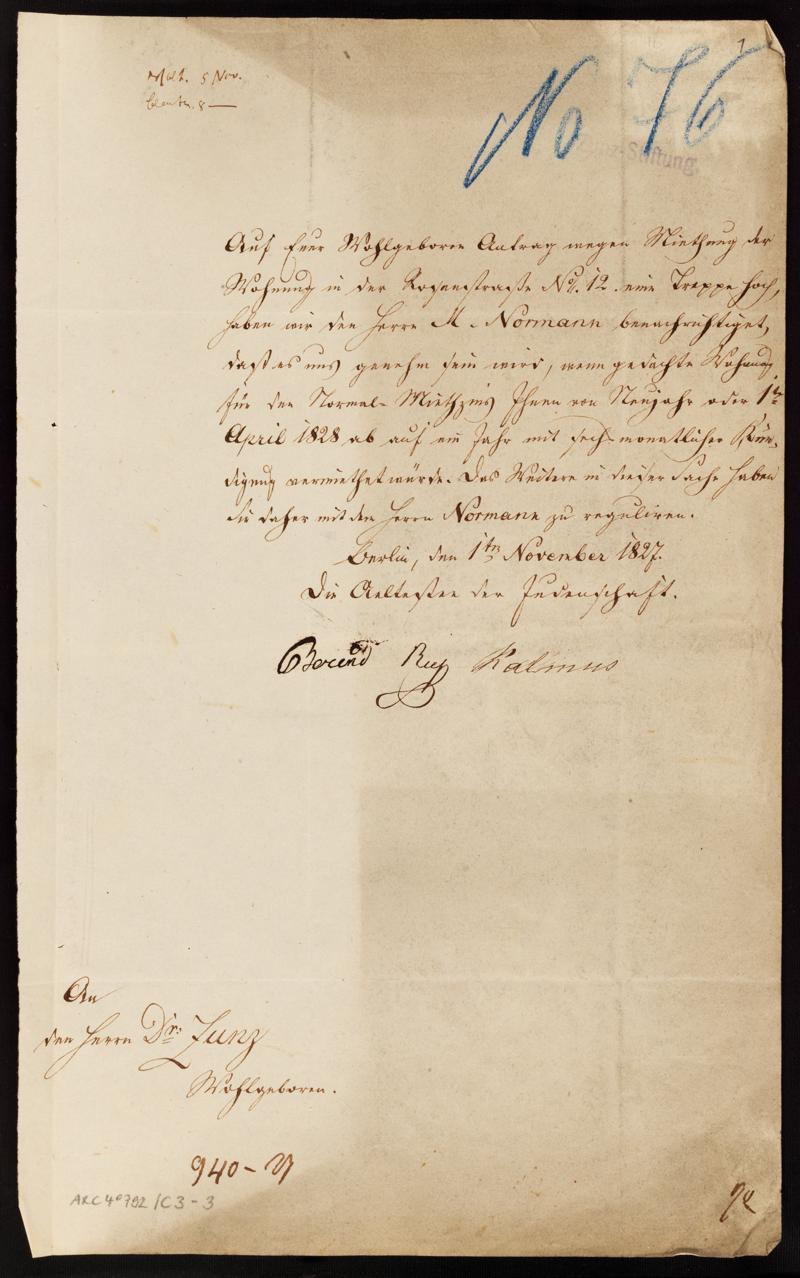 1
5 Nov.
8 —
No 76
Zunz-Stiftung
Auf Euer Wohlgeboren Antrag wegen Miethung der
Wohnung in der Rosenstraße No. 12. eine Treppe hoch,
haben wir den Herrn M. Normann benachrichtiget,
daß es uns genehm sein wird, wenn gedachte Wohnung
für den Normal-Miethzins Ihnen von Neujahr oder 1ten
April 1828 ab auf ein Jahr mit sechsmonatlicher Kün-
digung vermiethet würde. Das Weitere in dieser Sache haben
Sie daher mit dem Herrn Normann zu reguliren.
Berlin, den 1ten November 1827.
Die Aeltesten der Judenschaft.
Berend Kalmus
An
den Herrn Dr. Zunz
Wohlgeboren.
940-
ARC 4° 792 /C3-3